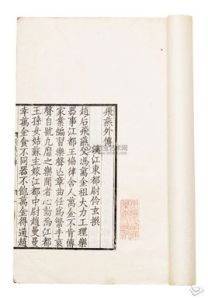 飛燕外傳
漢江東都尉伶玄撰
趙后飛燕父馮萬金祖大力工理樂
器事江都王協律舍人萬金不肯傳
家業編習樂聲亡章曲任為繁手哀
聲自號凡靡之樂聞者心動焉江都
王孫女姑蘇主嫁江都中尉趙曼曼
幸萬金食不同器不飽萬金得通趙